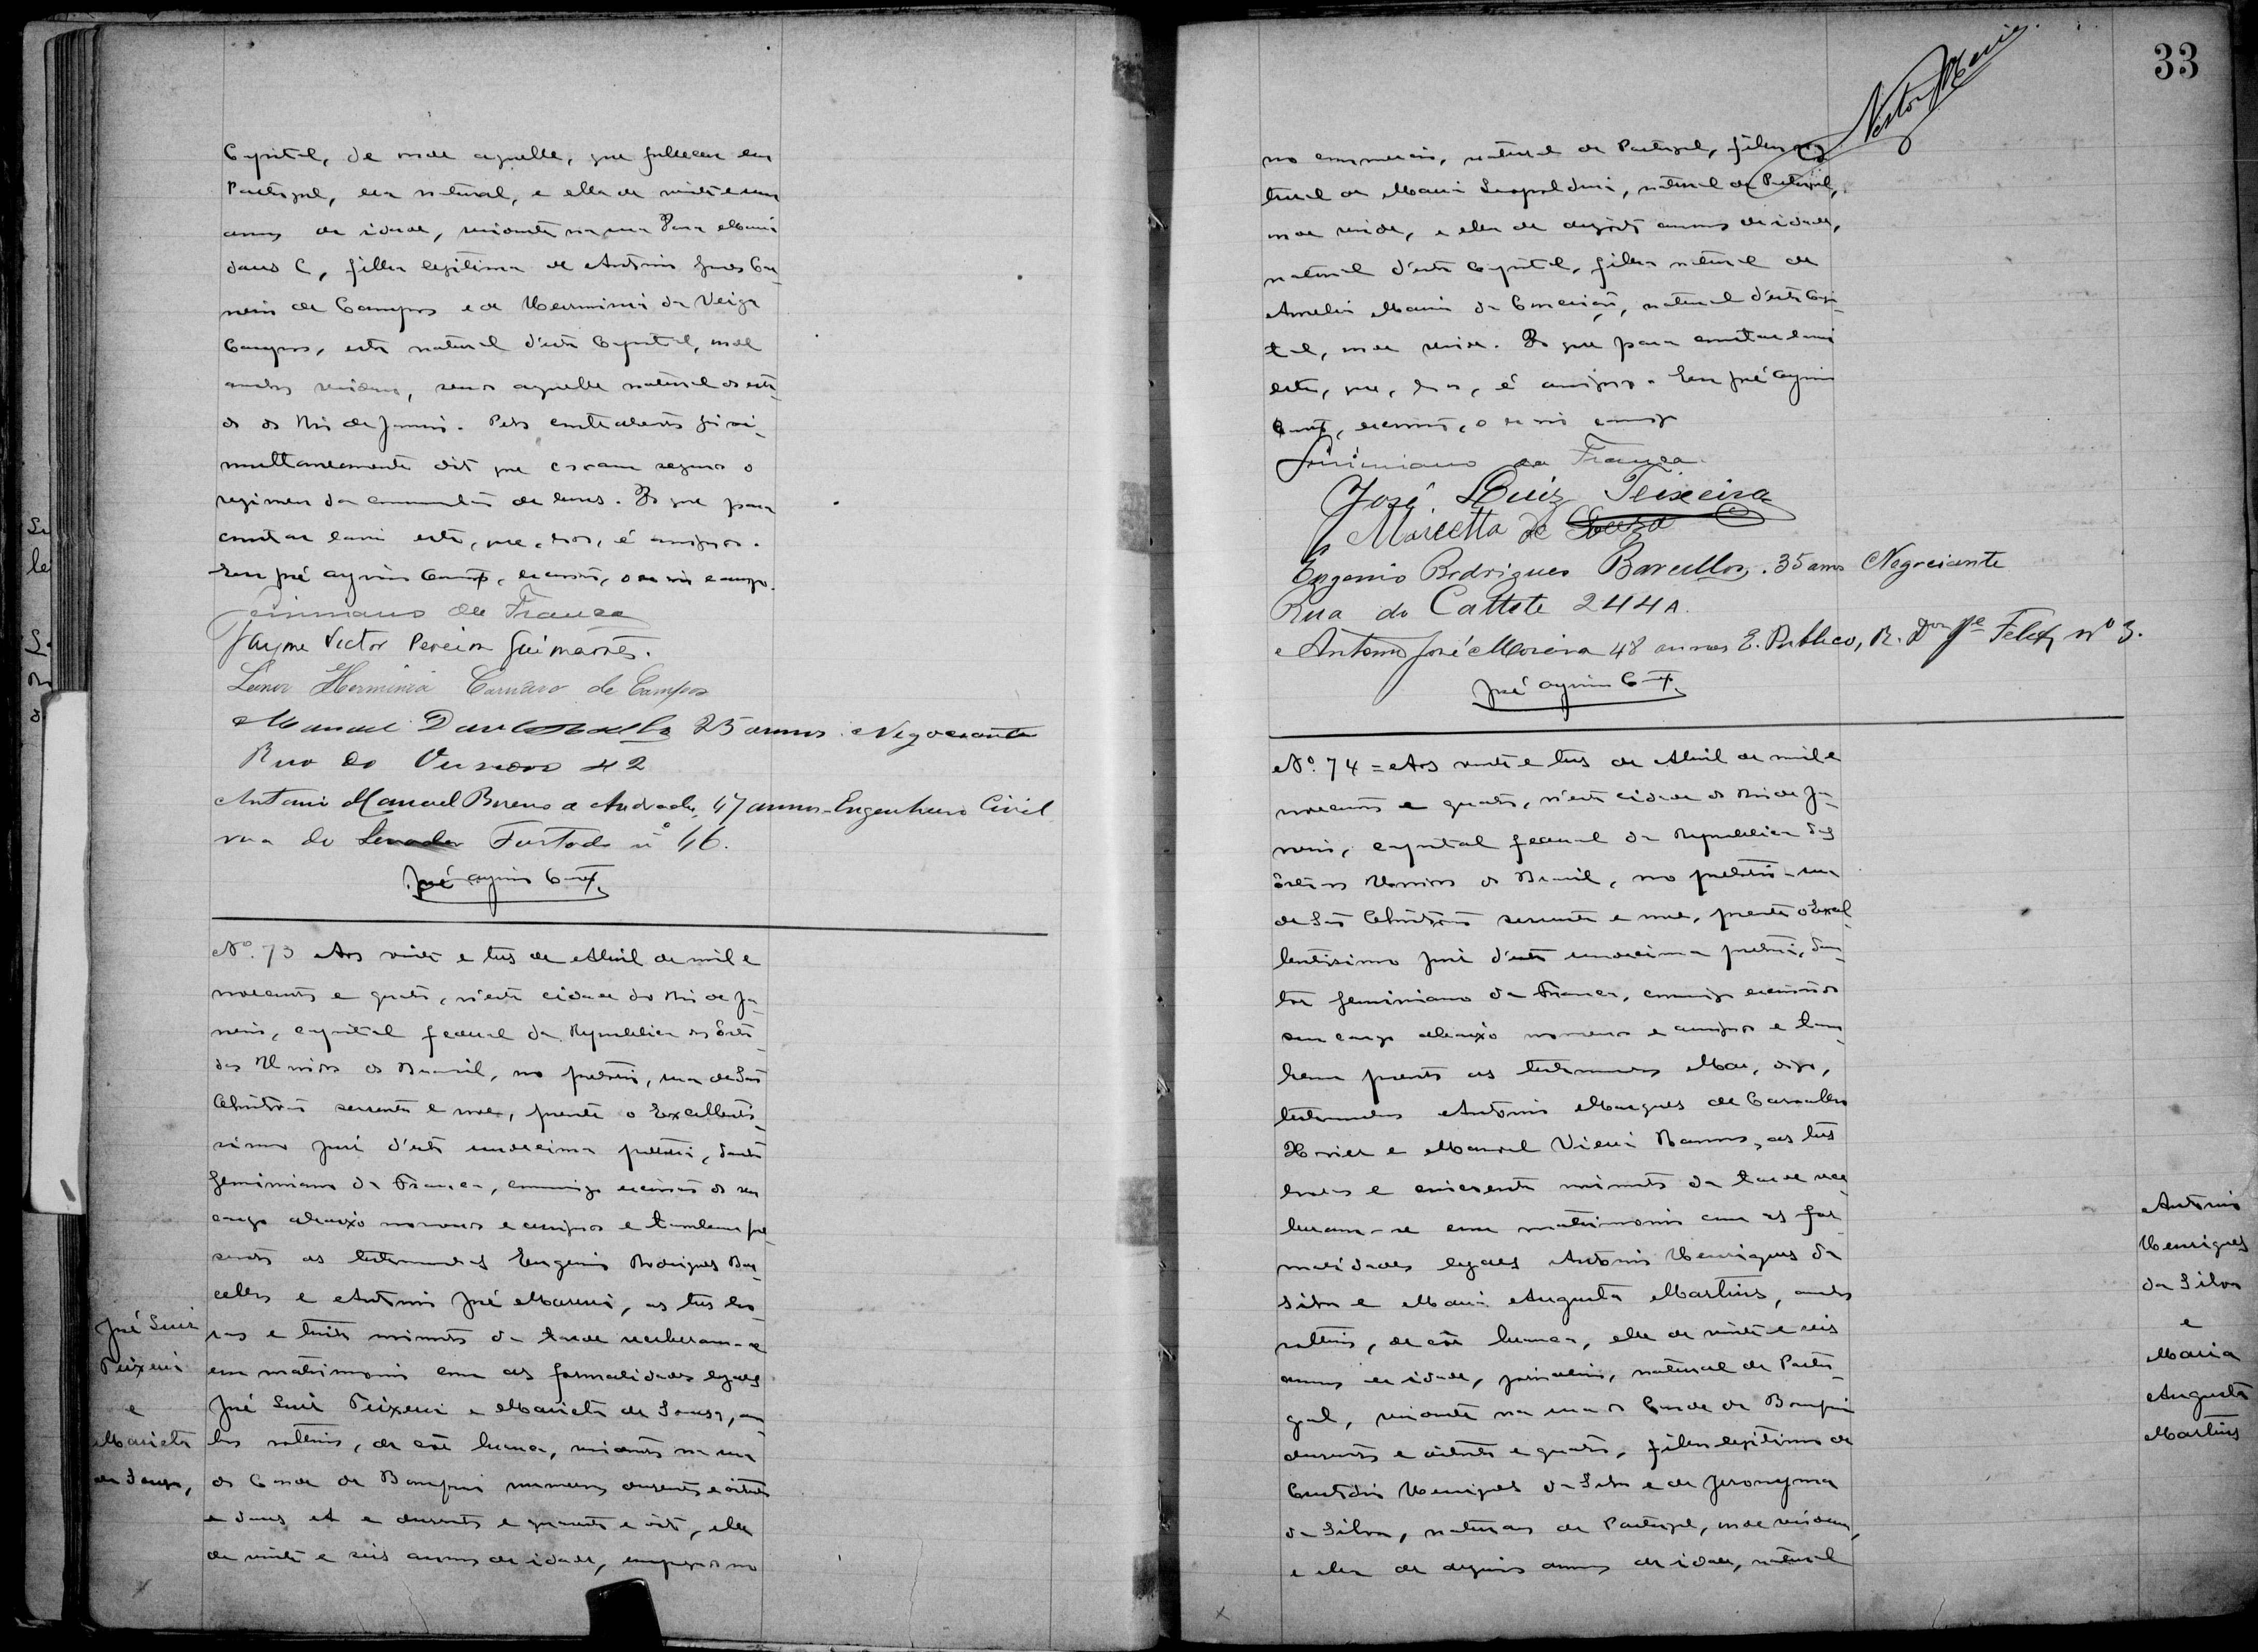 Capital, de onde aquelle, que falleceu em
Portugal, era natural, e ella de vinte e um
annos de idade, residente na rua Dona Maria
dous C, filha legitima de Antonio Car-
neiro de Campos e de Herminia da Veiga
Campos, esta natural d'esta Capital, onde
ambos residem, sendo aquelle natural do esta-
do do Rio de Janeiro. Pelos contrahentes foi si-
multaneamente dito que casam segundo o
regimen da communhão de bens. Do que para
constar lavrei este, que, lido, é assignado.
Eu José escrivão, o escrevi e assigno.
Geminiano da Franca
Jayme Victor Pereira Guimarães.
Leonor Herminia Carneiro de Campos
Manuel 25 annos Negociante
Rua do 42
Antonio Manuel Bueno de Andrada, 47 annos Engenheiro Civil
rua do Senador Furtado nº 46.
José
Nº. 73 Aos vinte e tres de Abril de mil e
novecentos e quatro, n'esta cidade do Rio de Ja-
neiro, capital federal da Republica dos Esta-
dos Unidos do Brasil, no pretorio, rua de São
Christovão sessenta e nove, presente o Excellentis-
simo Juiz d'esta undecima pretoria, Doutor
Geminiano da Franca, commigo escrivão do seu
cargo abaixo nomeado e assignado e tambem pre-
sentes as testemunhas Eugenio Rodrigues Bar-
cellos e Antonio José Moreira, as tres ho-
ras e trinta minutos da tarde receberam-se
em matrimonio com as formalidades legaes
José Luiz Teixeira e Marieta de Souza, am-
bos solteiros, de côr branca, residentes na rua
do Conde de Bomfim numeros duzentos e oitenta
e dous A e duzentos e quarenta e oito, elle
de vinte e seis annos de idade, empregado no
José Luiz
Teixeira
e
Marieta
de Souza,
33
Nestor Meira
no commercio, natural de Portugal, filho na-
tural de Maria Leopoldina, natural de Portugal,
onde reside, e ella de dezoito annos de idade,
natural d'esta Capital, filha natural de
Amelia Maria da Conceição, natural d'esta Capi-
tal, onde reside. Do que para constar lavrei
este, que, lido, é assignado. Eu José
escrivão, o escrevi e assigno
Geminiano da Franca
José Luiz Teixeira
Marietta de Souza
Eugenio Rodrigues Barcellos, 35 annos Negociante
Rua do Cattete 244A.
Antonio José Moreira 48 annos E. Publico, R. Dor Je Felix nº 3.
José
Nº. 74 = Aos vinte e tres de Abril de mil e
novecentos e quatro, n'esta cidade do Rio de Ja-
neiro, capital federal da Republica dos
Estados Unidos do Brasil, no pretorio, rua
de São Christovão sessenta e nove, presente o Excel-
lentissimo Juiz d'esta undecima pretoria, Dou-
tor Geminiano da Franca, commigo escrivão do
seu cargo abaixo nomeado e assignado e tam-
bem presentes as testemunhas Mar, digo,
testemunhas Antonio Marques de Carvalho
Xavier e Manoel Vieira Ramos, as tres
horas e cincoenta minutos da tarde rece-
beram-se em matrimonio com as for-
malidades legaes Antonio Henriques da
Silva e Maria Augusta Martins, ambos
solteiros, de côr branca, elle de vinte e seis
annos de idade, jornaleiro, natural de Portu-
gal, residente na rua do Conde de Bomfim
duzentos e oitenta e quatro, filho legitimo de
Custodio Henriques da Silva e de Jeronyma
da Silva, naturaes de Portugal, onde residem,
e ella de annos de idade, natural
Antonio
Henriques
da Silva
e
Maria
Augusta
Martins